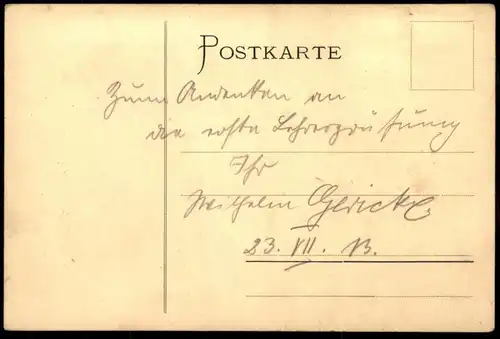 POSTKARTE
Zum Andenken an
die erste Lehrerprüfung
Ihr
Wilhelm Gericke
23. VII. 13.